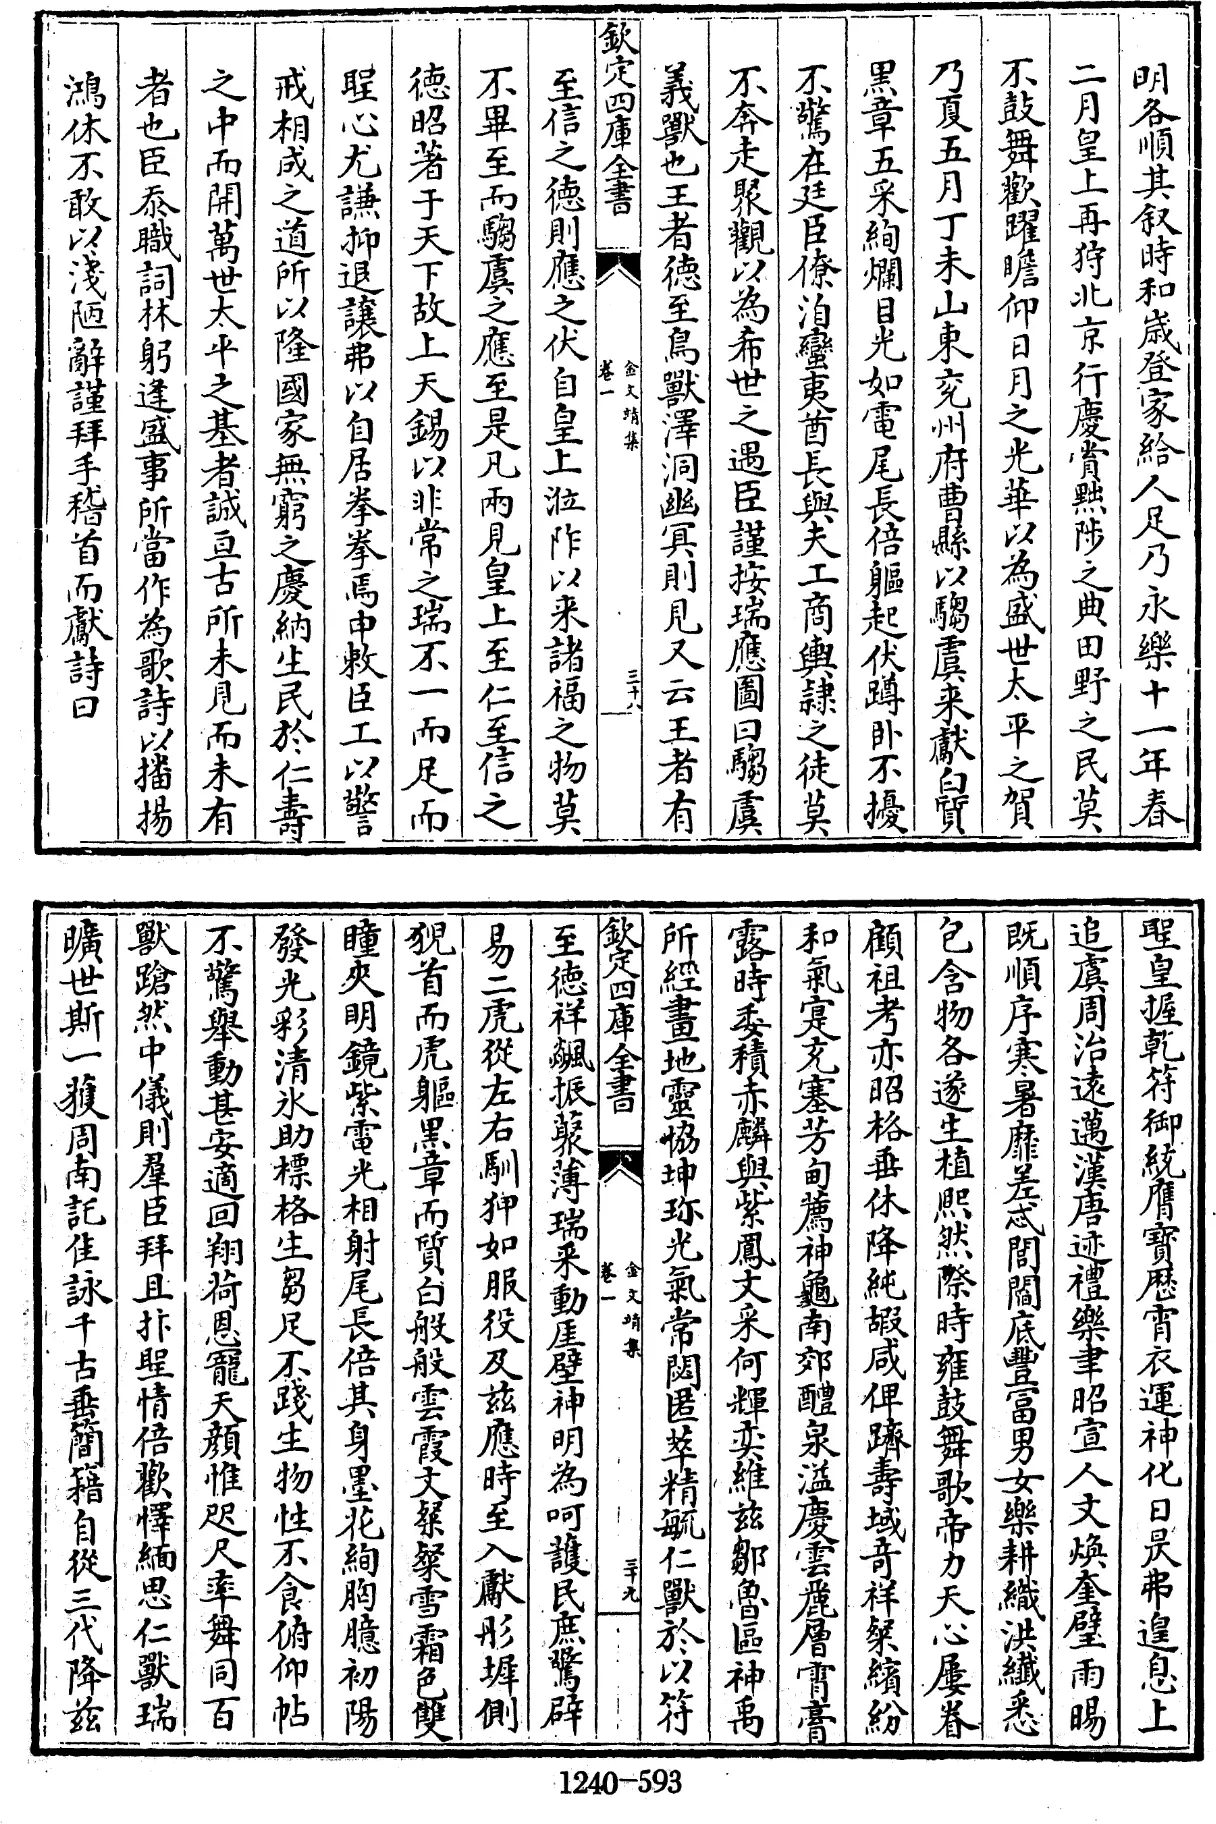 明各順其叙時和歲登家給人足乃永樂十一年春
二月皇上再狩北京行慶賞黜陟之典田野之民莫
不鼓舞歡躍瞻仰日月之光華以為盛世太平之賀
乃夏五月丁未山東兖州府曹縣以騶虞来獻白質
黑章五采絢爛目光如電尾長倍軀起伏蹲卧不擾
不驚在廷臣僚洎蠻夷酋長與夫工商輿隷之徒莫
不奔走聚觀以為希世之遇臣謹按瑞應圖曰騶虞
義獸也王者徳至鳥獸澤洞幽冥則見又云王者有
欽定四庫全書
金文靖集
卷一
三十八
至信之徳則應之伏自皇上涖阼以来諸福之物莫
不畢至而騶虞之應至是凡兩見皇上至仁至信之
徳昭著于天下故上天錫以非常之瑞不一而足而
聖心尤謙抑退讓弗以自居拳拳焉申敕臣工以警
戒相成之道所以隆國家無窮之慶納生民於仁壽
之中而開萬世太平之基者誠亘古所未見而未有
者也臣忝職詞林躬逢盛事所當作為歌詩以播揚
鴻休不敢以淺陋辭謹拜手稽首而獻詩曰
聖皇握乾符御統膺寶歴宵衣運神化日昃弗遑息上
追虞周治遠邁漢唐迹禮樂聿昭宣人文煥奎璧雨暘
既順序寒暑靡差忒閭閻底豐富男女樂耕織洪纖悉
包含物各遂生植熙然際時雍鼓舞歌帝力天心屢眷
顧祖考亦昭格垂休降純嘏咸俾躋壽域奇祥粲繽紛
和氣寔充塞芳甸薦神龜南郊醴泉溢慶雲麗層霄膏
露時委積赤麟與紫鳳文采何輝奕維兹鄒魯區神禹
所經畫地靈恊坤珎光氣常閟匿萃精毓仁獸於以符
欽定四庫全書
金文靖集
卷一
三十九
至徳祥飈振藂薄瑞采動厓壁神明為呵護民庶驚辟
易二虎從左右馴狎如服役及兹應時至入獻彤墀側
猊首而虎軀黑章而質白般般雲霞文粲粲雪霜色雙
瞳夾明鏡紫電光相射尾長倍其身墨花絢胸臆初陽
發光彩清氷助標格生芻足不踐生物性不食俯仰帖
不驚舉動甚安適回翔荷恩寵天顔惟咫尺率舞同百
獸蹌然中儀則羣臣拜且抃聖情倍歡懌緬思仁獸瑞
曠世斯一獲周南記佳詠千古垂簡籍自從三代降兹
1240-593